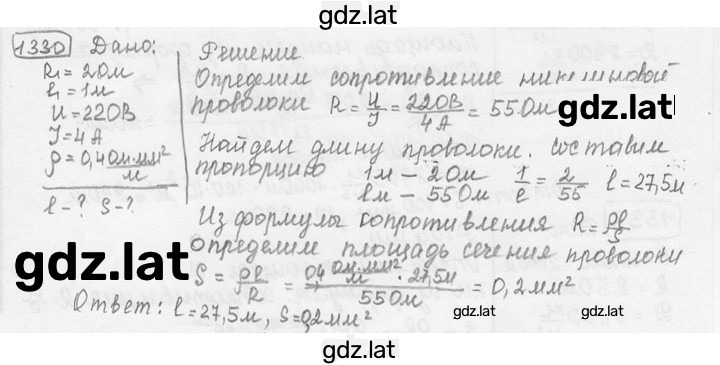 gdz.lat
1330 Дано:
R₁ = 2 Ом
l₁ = 1м
U = 220В
I = 4 А
ρ = 0,4 Ом·мм²/м
l - ? S - ?
Решение
Определим сопротивление никелиновой
проволоки R = U/I = 220В/4А = 55 Ом
gdz.lat
Найдем длину проволоки. составим
пропорцию 1м – 2 Ом 1/l = 2/55 l = 27,5м
lм – 55 Ом
Из формулы сопротивления R = ρl/S
Определим площадь сечения проволоки
gdz.lat
S = ρl/R = 0,4 Ом·мм²/м · 27,5м / 55 Ом = 0,2мм²
Ответ: l = 27,5м, S = 0,2 мм²
gdz.lat gdz.lat
gdz.lat